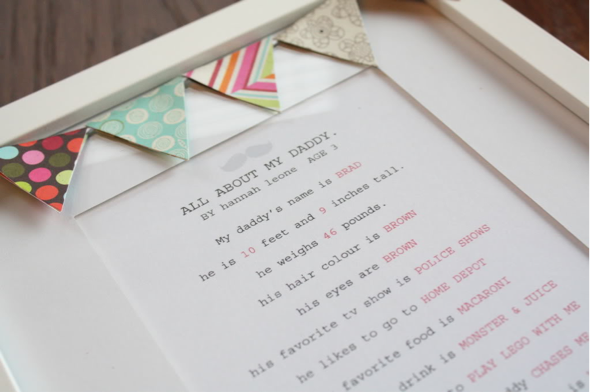 ALL ABOUT MY DADDY.
BY hannah leone AGE 3
My daddy's name is BRAD
he is 10 feet and 9 inches tall.
he weighs 46 pounds.
his hair colour is BROWN
his eyes are BROWN
his favorite tv show is POLICE SHOWS
he likes to go to HOME DEPOT
favorite food is MACARONI
drink is MONSTER & JUICE
to PLAY LEGO WITH ME
CHASES ME